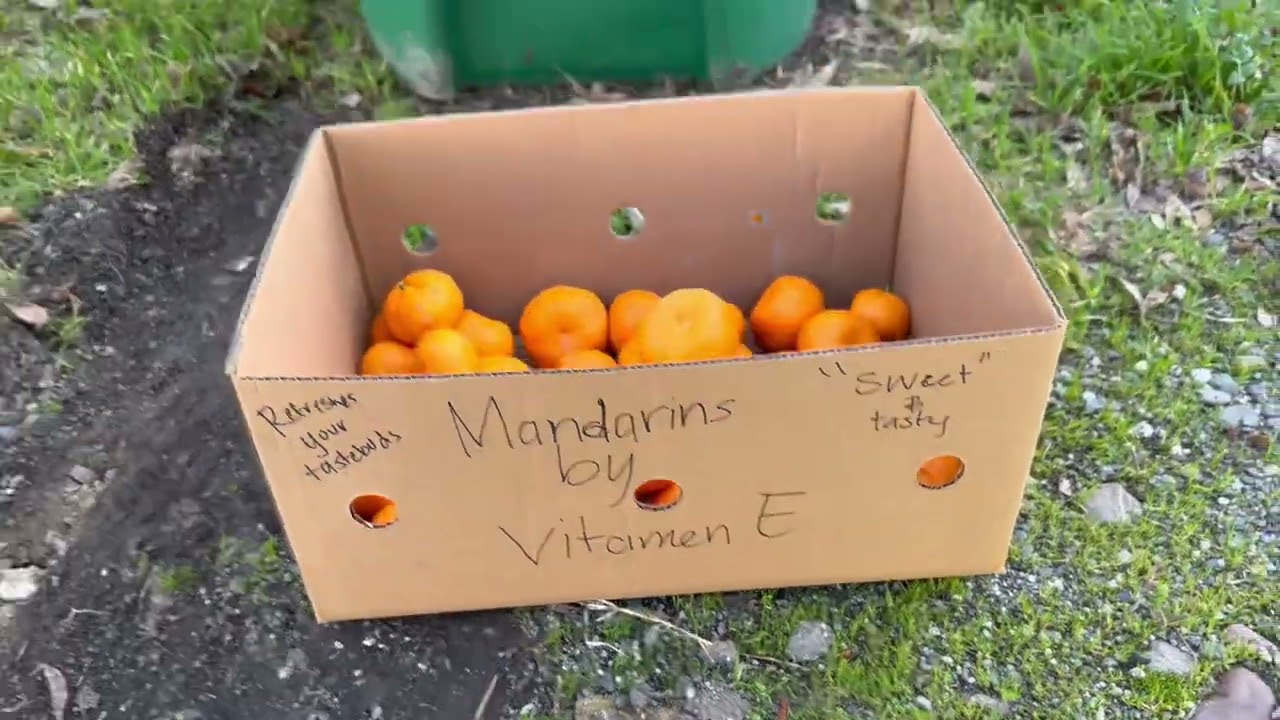 Refreshes
your
tastebuds
Mandarins
by
Vitamen E
"Sweet"
&
tasty